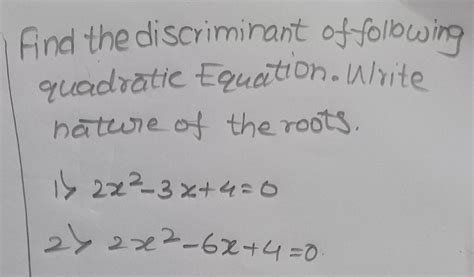 Find the discriminant of following
quadratic Equation. Write
nature of the roots.
1> 2x²-3x+4=0
2> 2x²-6x+4=0.